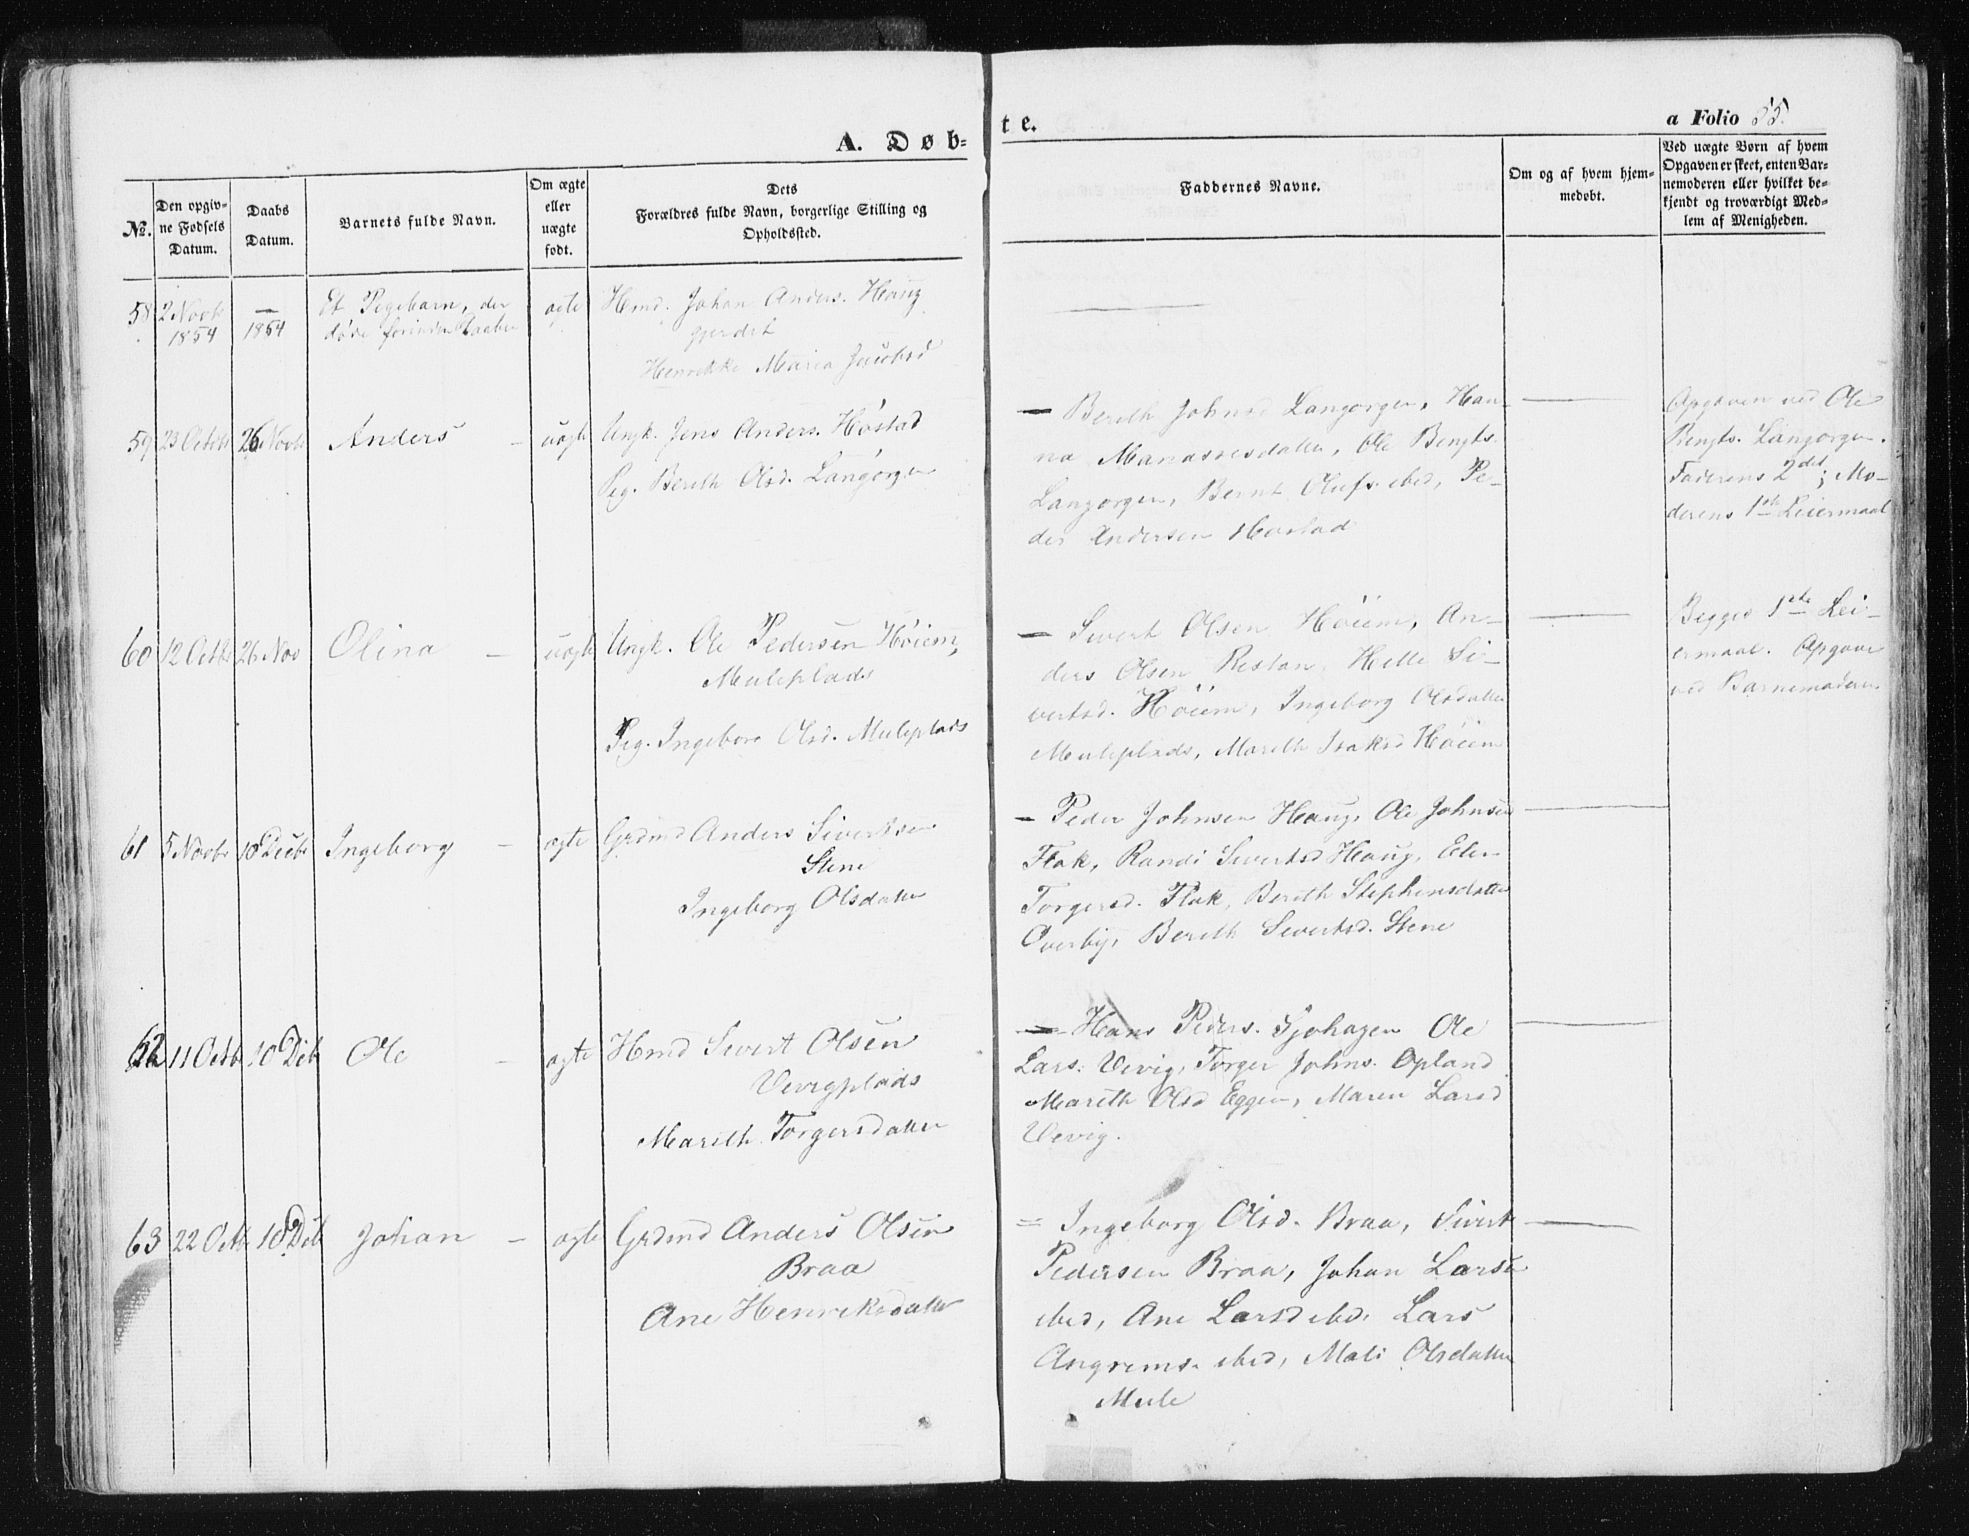 A. Døb-
te.
a Folio 55.
No.
Den opgiv-
ne Fødsels
Datum.
Daabs
Datum.
Barnets fulde Navn.
Om ægte
eller
uægte
født.
Dets
Forældres fulde Navn, borgerlige Stilling og
Opholdssted.
Faddernes Navne.
Om og af hvem hjem-
medøbt.
Ved uægte Børn af hvem
Opgaven er skeet, enten Bar-
nemoderen eller hvilket be-
kjendt og troværdigt Med-
lem af Menigheden.
58 2 Novb 1854
— 1854
Et Pigebarn, der
døde forinden Daaben
ægte
Hmd. Johan Anders. Haug
gjerdet
Henrikke Maria Jacobsd
59 23 Octbr 26 Novb Anders — uægte
Ungk. Jens Anders. Høstad
Pig. Bereth Olsd. Langørgen
— Bereth Johnsd Langørgen, Han-
na Manassesdatter, Ole Bengts.
Langørgen, Bernt Olufs. ibid, Pe-
der Andersen Høstad
Opgaven ved Ole
Bengts. Langørgen.
Faderens 2det, Mo-
derens 1ste Leiermaal
60 12 Octbr 26 Nov Olina — uægte
Ungk. Ole Pedersen Høiem,
Muleplads
Pig. Ingeborg Olsd. Muleplads
— Sivert Olsen Høiem, An-
ders Olsen Restan, Helle Si-
vertsd. Høiem, Ingeborg Olsdatter
Muleplads, Mareth Isaksd Høiem
Begges 1ste Lei-
ermaal. Opgave
ved Barnemoderen
61 5 Novbr 10 Decbr Ingeborg — ægte
Grdmd Anders Sivertsen
Stene
Ingeborg Olsdatter
— Peder Johnsen Haug, Ole Johnsen
Flak, Randi Sivertsd Haug, Elen
Torgersd. Flak, Bereth Stephensdatter
Overby, Bereth Sivertsd. Stene
62 11 Octb 10 Deb Ole — ægte
Hmd Sivert Olsen
Vevigplads
Mareth Torgersdatter
— Hans Peders. Sjøhagen Ole
Lars. Vevig, Torger Johns. Opland
Mareth Olsd Eggen, Maren Larsd
Vevig.
63 22 Octb 10 Deb Johan — ægte
Grdmd Anders Olsen
Braa
Ane Henriksdatter
= Ingeborg Olsd. Braa, Sivert
Pedersen Braa, Johan Larsen
ibid, Ane Larsd ibd, Lars
Angrims. ibid, Mali Olsdatter
Mule